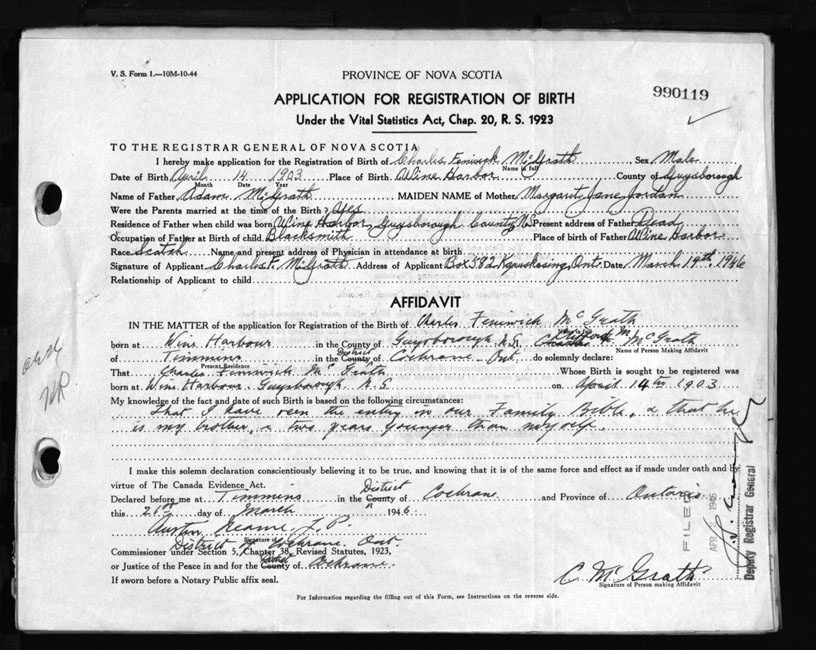 V. S. Form 1.—10M-10-44
PROVINCE OF NOVA SCOTIA
990119
APPLICATION FOR REGISTRATION OF BIRTH
Under the Vital Statistics Act, Chap. 20, R. S. 1923
TO THE REGISTRAR GENERAL OF NOVA SCOTIA
I hereby make application for the Registration of Birth of Charles Fenwick McGrath Sex Male
Name in full
Date of Birth April 14 1903 Place of Birth Wine Harbor County of Guysborough
Month Date Year
Name of Father Adam McGrath MAIDEN NAME of Mother Margaret Jane Jordan
Were the Parents married at the time of the Birth? Yes
Residence of Father when child was born Wine Harbor, Guysborough County N.S. Present address of Father Dead
Occupation of Father at Birth of child Blacksmith Place of birth of Father Wine Harbor
Race Scotch Name and present address of Physician in attendance at birth
Signature of Applicant Charles F. McGrath Address of Applicant Box 582 Kapuskasing, Ont. Date March 19th 1946
Relationship of Applicant to child
AFFIDAVIT
IN THE MATTER of the application for Registration of the Birth of Charles Fenwick McGrath
born at Wine Harbour in the County of Guysborough N.S. McGrath
Name of Person Making Affidavit
of Timmins in the District County of Cochrane Ont do solemnly declare:
Present Residence
That Charles Fenwick McGrath Whose Birth is sought to be registered was
born at Wine Harbour Guysborough N.S. on April 14th 1903
My knowledge of the fact and date of such Birth is based on the following circumstances:
That I have seen the entry in our Family Bible, & that he
is my brother, & two years younger than myself.
I make this solemn declaration conscientiously believing it to be true, and knowing that it is of the same force and effect as if made under oath and by
virtue of The Canada Evidence Act.
Declared before me at Timmins in the District County of Cochrane and Province of Ontario
this 21st day of March 1946
Austin J.P.
District of Cochrane, Ont.
Commissioner under Section 5, Chapter 38, Revised Statutes, 1923,
or Justice of the Peace in and for the County of Cochrane.
If sworn before a Notary Public affix seal.
C. McGrath
Signature of Person making Affidavit
For Information regarding the filling out of this Form, see Instructions on the reverse side.
FILED
APR 1946
Deputy Registrar General